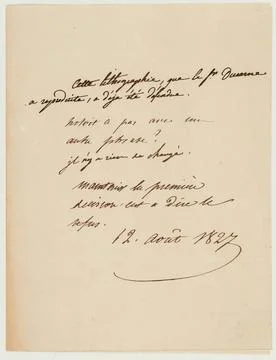 Cette lithographie, que le Sr Ducarne
a reproduite, a déja été défendue.
n'etoit a pas avec un
autre phrase?
il n'y a rien de changé.
maintenir la première
décision. c'est a dire le
refus.
12. août 1827